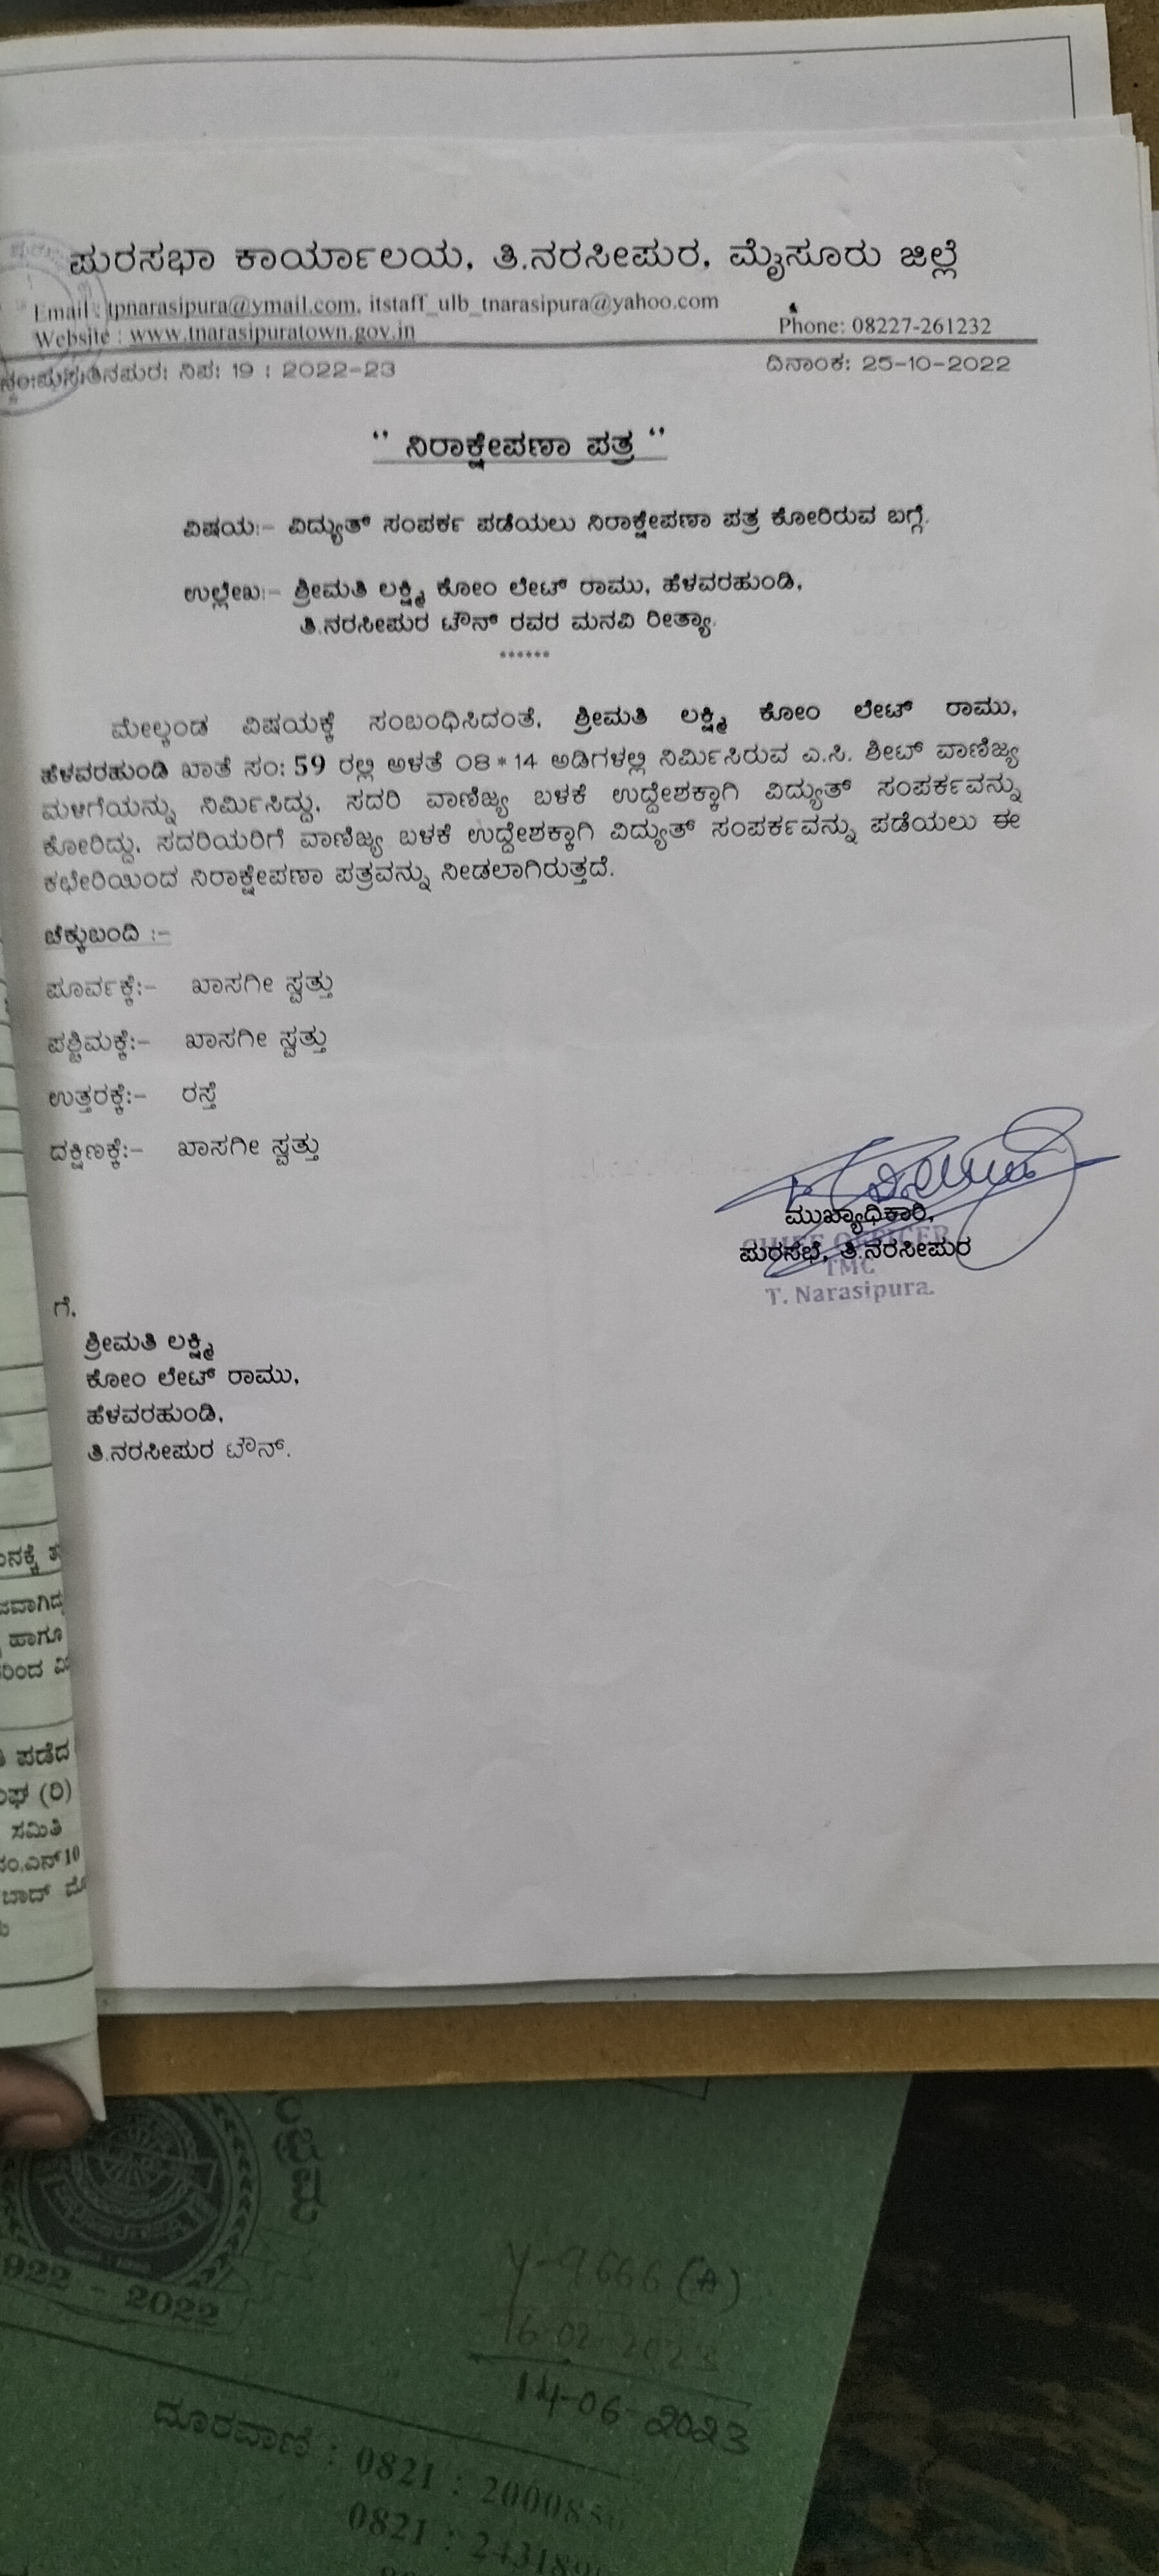 ಪುರಸಭಾ ಕಾರ್ಯಾಲಯ, ತಿ.ನರಸೀಪುರ, ಮೈಸೂರು ಜಿಲ್ಲೆ
Email : tpnarasipura@ymail.com, itstaff_ulb_tnarasipura@yahoo.com
Website : www.tnarasipuratown.gov.in
Phone: 08227-261232
ನಿಪ: 19 : 2022-23
ದಿನಾಂಕ: 25-10-2022
" ನಿರಾಕ್ಷೇಪಣಾ ಪತ್ರ "
ವಿಷಯ:- ವಿದ್ಯುತ್ ಸಂಪರ್ಕ ಪಡೆಯಲು ನಿರಾಕ್ಷೇಪಣಾ ಪತ್ರ ಕೋರಿರುವ ಬಗ್ಗೆ.
ಉಲ್ಲೇಖ:- ಶ್ರೀಮತಿ ಲಕ್ಷ್ಮಿ ಕೋಂ ಲೇಟ್ ರಾಮು, ಹೆಳವರಹುಂಡಿ,
ತಿ.ನರಸೀಪುರ ಟೌನ್ ರವರ ಮನವಿ ರೀತ್ಯಾ.
******
ಮೇಲ್ಕಂಡ ವಿಷಯಕ್ಕೆ ಸಂಬಂಧಿಸಿದಂತೆ, ಶ್ರೀಮತಿ ಲಕ್ಷ್ಮಿ ಕೋಂ ಲೇಟ್ ರಾಮು,
ಹೆಳವರಹುಂಡಿ ಖಾತೆ ಸಂ: 59 ರಲ್ಲಿ ಅಳತೆ 08*14 ಅಡಿಗಳಲ್ಲಿ ನಿರ್ಮಿಸಿರುವ ಎ.ಸಿ. ಶೀಟ್ ವಾಣಿಜ್ಯ
ಮಳಗೆಯನ್ನು ನಿರ್ಮಿಸಿದ್ದು, ಸದರಿ ವಾಣಿಜ್ಯ ಬಳಕೆ ಉದ್ದೇಶಕ್ಕಾಗಿ ವಿದ್ಯುತ್ ಸಂಪರ್ಕವನ್ನು
ಕೋರಿದ್ದು, ಸದರಿಯರಿಗೆ ವಾಣಿಜ್ಯ ಬಳಕೆ ಉದ್ದೇಶಕ್ಕಾಗಿ ವಿದ್ಯುತ್ ಸಂಪರ್ಕವನ್ನು ಪಡೆಯಲು ಈ
ಕಛೇರಿಯಿಂದ ನಿರಾಕ್ಷೇಪಣಾ ಪತ್ರವನ್ನು ನೀಡಲಾಗಿರುತ್ತದೆ.
ಚೆಕ್ಕುಬಂದಿ :-
ಪೂರ್ವಕ್ಕೆ:- ಖಾಸಗೀ ಸ್ವತ್ತು
ಪಶ್ಚಿಮಕ್ಕೆ:- ಖಾಸಗೀ ಸ್ವತ್ತು
ಉತ್ತರಕ್ಕೆ:- ರಸ್ತೆ
ದಕ್ಷಿಣಕ್ಕೆ:- ಖಾಸಗೀ ಸ್ವತ್ತು
ಮುಖ್ಯಾಧಿಕಾರಿ,
ಪುರಸಭೆ, ತಿ.ನರಸೀಪುರ
CHIEF OFFICER
TMC
T. Narasipura.
ಗೆ,
ಶ್ರೀಮತಿ ಲಕ್ಷ್ಮಿ
ಕೋಂ ಲೇಟ್ ರಾಮು,
ಹೆಳವರಹುಂಡಿ,
ತಿ.ನರಸೀಪುರ ಟೌನ್.
ಹಾಗೂ
ಪಡೆದ
(ರಿ)
ಸಮಿತಿ
922 - 2022
Y-9666 (A)
16-02-2023
14-06-2023
ದೂರವಾಣಿ : 0821 : 200085
0821 : 243189